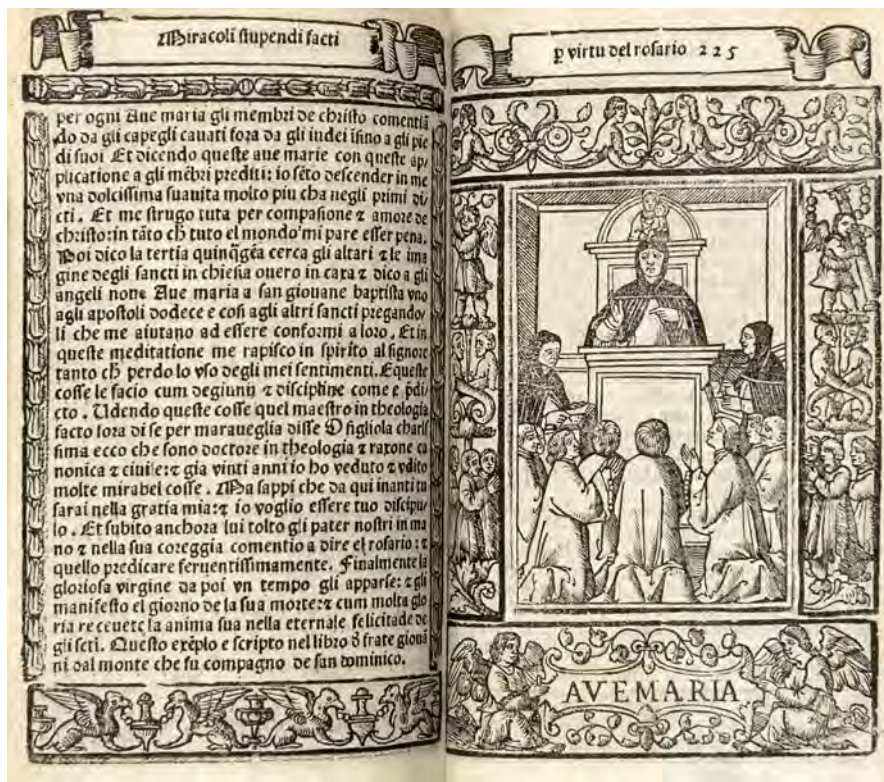 Miracoli stupendi facti
per ogni Aue maria gli membri de christo comentiã
do da gli capegli cauati fora da gli iudei isino a gli pie
di suoi Et dicendo queste aue marie con queste ap
plicatione a gli mẽbri prediti: io sẽto descender in me
vna dolcissima suauita molto piu cha negli primi di
cti . Et me strugo tuta per compasione ⁊ amore de
christo: in tãto ch̃ tuto el mondo mi pare esser pena.
Poi dico la tertia quinq̃gẽa cerca gli altari ⁊ le ima
gine degli sancti in chiesia ouero in caxa ⁊ dico a gli
angeli none Aue maria a san giouane baptista vno
agli apostoli dodece e cosi agli altri sancti pregando
li che me aiutano ad essere conformi a loro . Et in
queste meditatione me rapisco in spirito al signore
tanto ch̃ perdo lo vso degli mei sentimenti. E queste
cosse le facio cum degiunii ⁊ discipline come e p̃di
cto . Udendo queste cosse quel maestro in theologia
facto fora di se per maraueglia disse O figliola charis
sima ecco che sono doctore in theologia ⁊ raxone ca
nonica ⁊ ciuile: ⁊ gia vinti anni io ho veduto ⁊ vdito
molte mirabel cosse . Ma sappi che da qui inanti tu
sarai nella gratia mia: ⁊ io voglio essere tuo discipu
lo . Et subito anchora lui tolto gli pater nostri in ma
no ⁊ nella sua coreggia comentio a dire el rosario : ⁊
quello predicare feruentissimamente. Finalmente la
gloriosa virgine da poi vn tempo gli apparse: ⁊ gli
manifesto el giorno de la sua morte: ⁊ cum molta glo
ria receuete la anima sua nella eternale felicitade de
gli scti. Questo exẽplo e scripto nel libro d̃ frate giouã
ni dal monte che fu compagno de san dominico.
ꝑ virtu del rosario 225
AVEMARIA